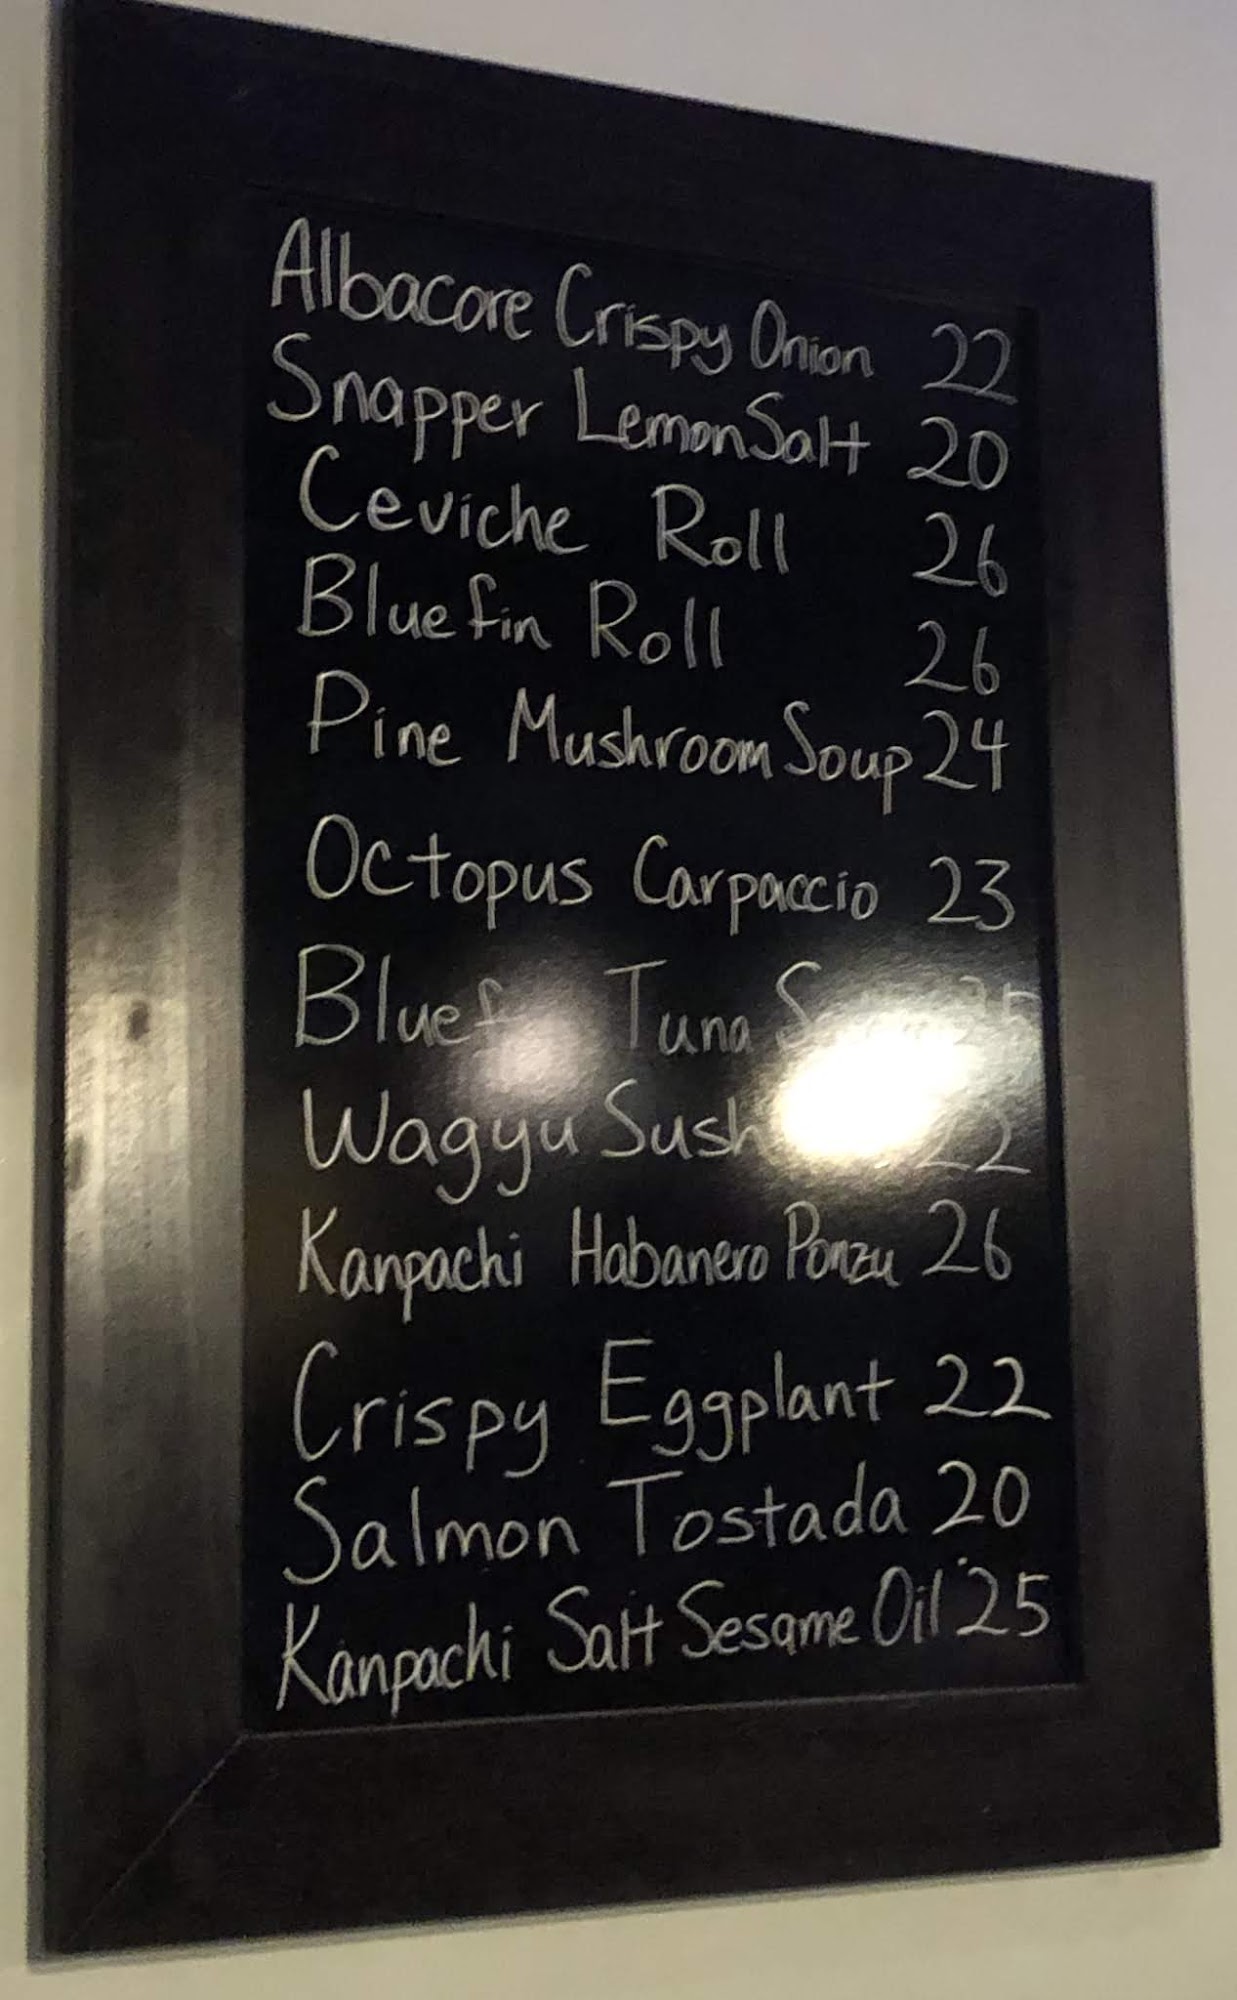 Albacore Crispy Onion 22
Snapper Lemon Salt 20
Ceviche Roll 26
Bluefin Roll 26
Pine Mushroom Soup 24
Octopus Carpaccio 23
Tuna
Wagyu 22
Kanpachi Habanero Ponzu 26
Crispy Eggplant 22
Salmon Tostada 20
Kanpachi Salt Sesame Oil 25